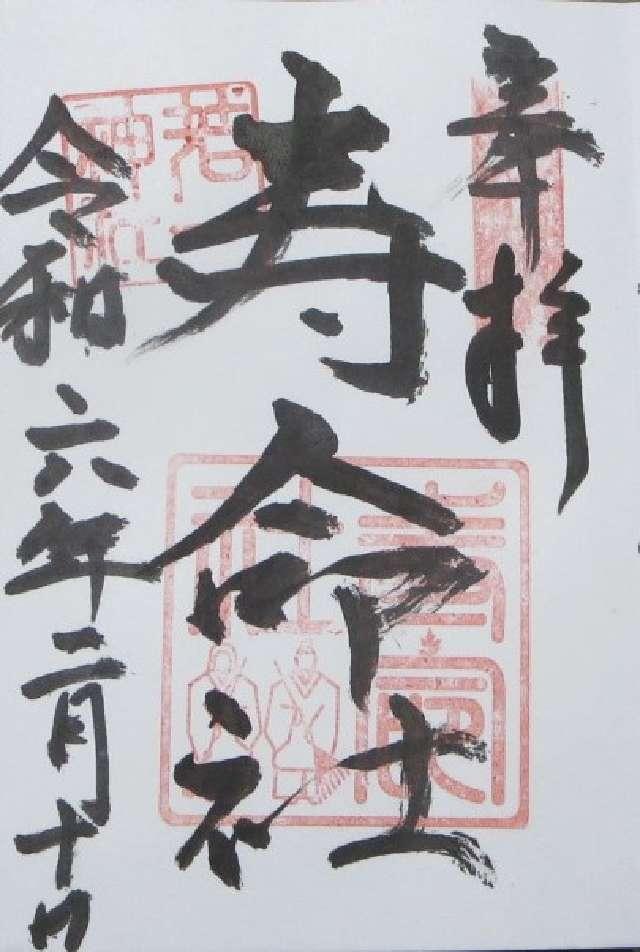 奉拝
寿命社
令和六年二月十日
若
神社
寿命
社